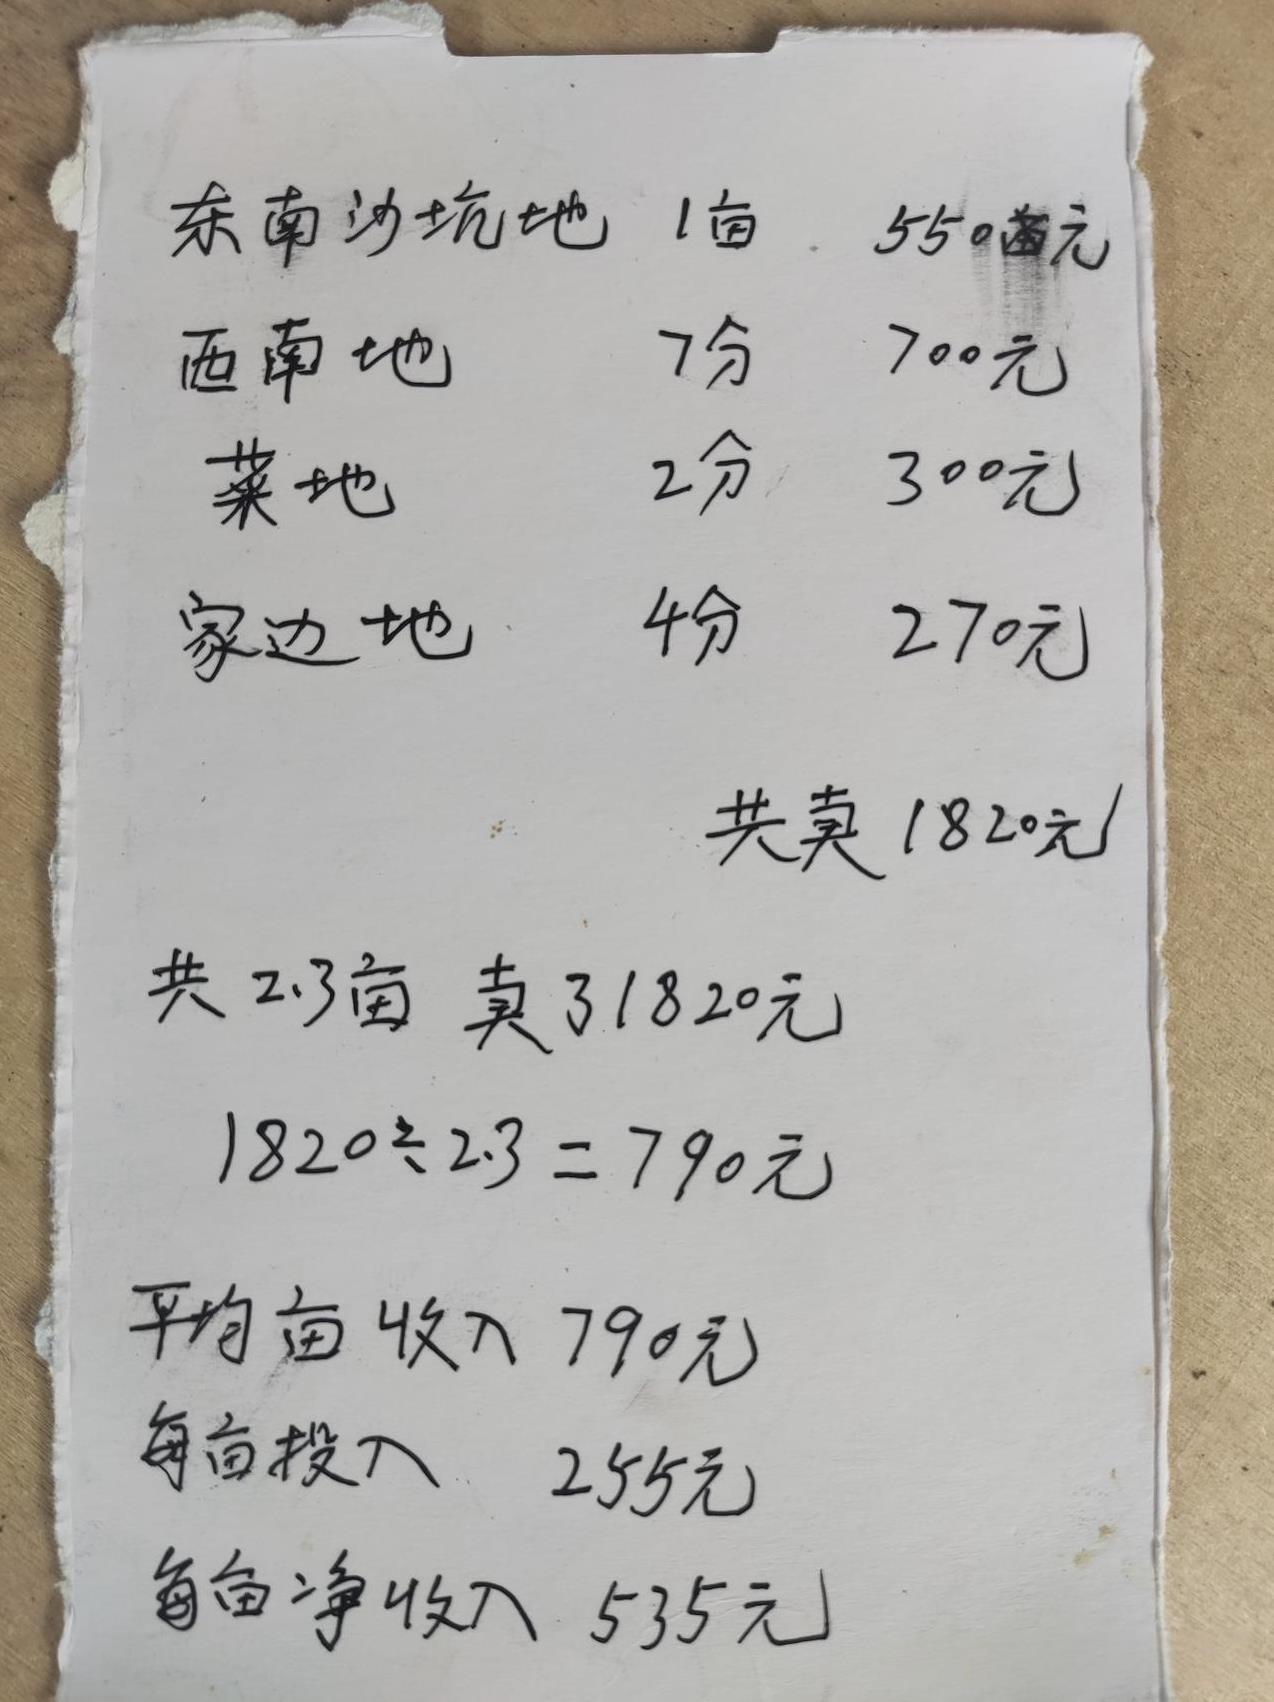 东南沙坑地 1亩 550元
西南地 7分 700元
菜地 2分 300元
家边地 4分 270元
共卖1820元
共2.3亩 卖了1820元
1820÷2.3=790元
平均亩收入790元
每亩投入 255元
每亩净收入 535元